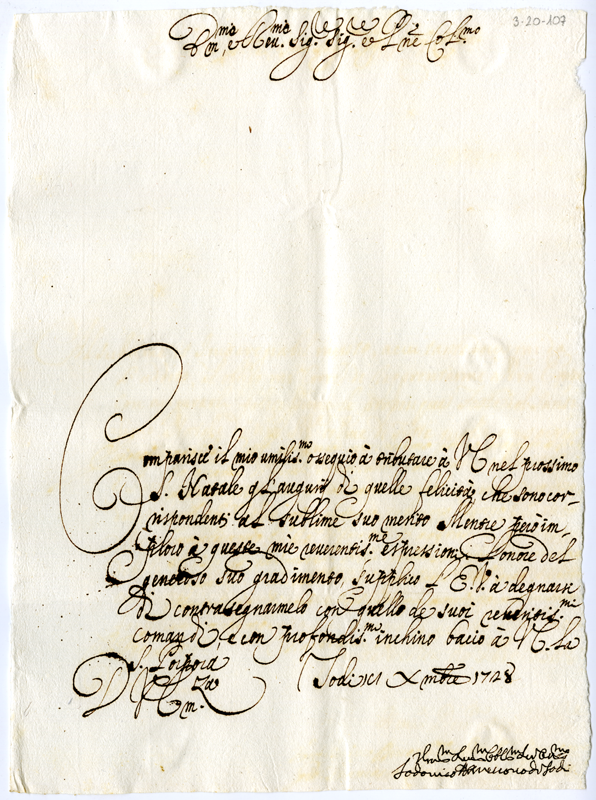 3-20-107
Em.mo, e Rev.mo Sig.re Sig.re e P.ne Col.mo
Comparisce il mio umilis.mo ossequio à tributare à V.E. nel prossimo
S. Natale gl'augurij di quelle felicità, che sono cor-
rispondenti al sublime suo merito. Mentre però im-
ploro à queste mie reverentis.me espressioni l'onore del
generoso suo gradimento, supplico l'E.V. à degnarsi
di contrasegnarmelo con quello de suoi reveritis.mi
comandi, e con profondis.mo inchino bacio à V.E. la
S. Porpora
D V Em.za
Lodi Xmbre 1728
Lodovico Vescovo di Lodi